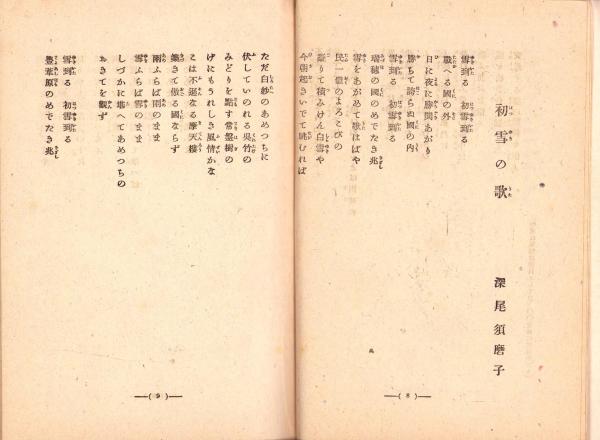 初雪の歌
深尾須磨子
雪到る 初雪到る
戰へる國の外
日に夜に勝鬨あがり
勝ちて誇らぬ國の内
雪到る 初雪到る
瑞穂の國のめでたき兆
雪をあがめて歌はばや
民一億のまろこびの
凝りて積みけん白雪や
今朝起きいでて眺むれば
—(8)—
ただ白妙のあめつちに
伏していのれる呉竹の
みどりを點す常盤樹の
げにもうれしき風情かな
こは不遜なる摩天樓
築きて傲る國ならず
雨ふらば雨のまま
雪ふらば雪のまま
しづかに堪へてあめつちの
おきてを觀ず
雪到る 初雪到る
豊葦原のめでたき兆
—(9)—